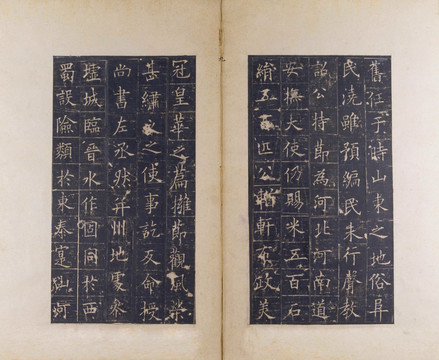 舊經于時山東之地俗阜
民澆雖預編民未行聲教
詔公持節為河北河南道
安撫大使仍賜米五百石
絹五百匹公輶軒布政美
冠皇華之篇擁節觀風榮
甚繡衣之使事訖反命授
尚書左丞然并州地處參
墟城臨晉水作固同於西
蜀設險類於東秦寔山河